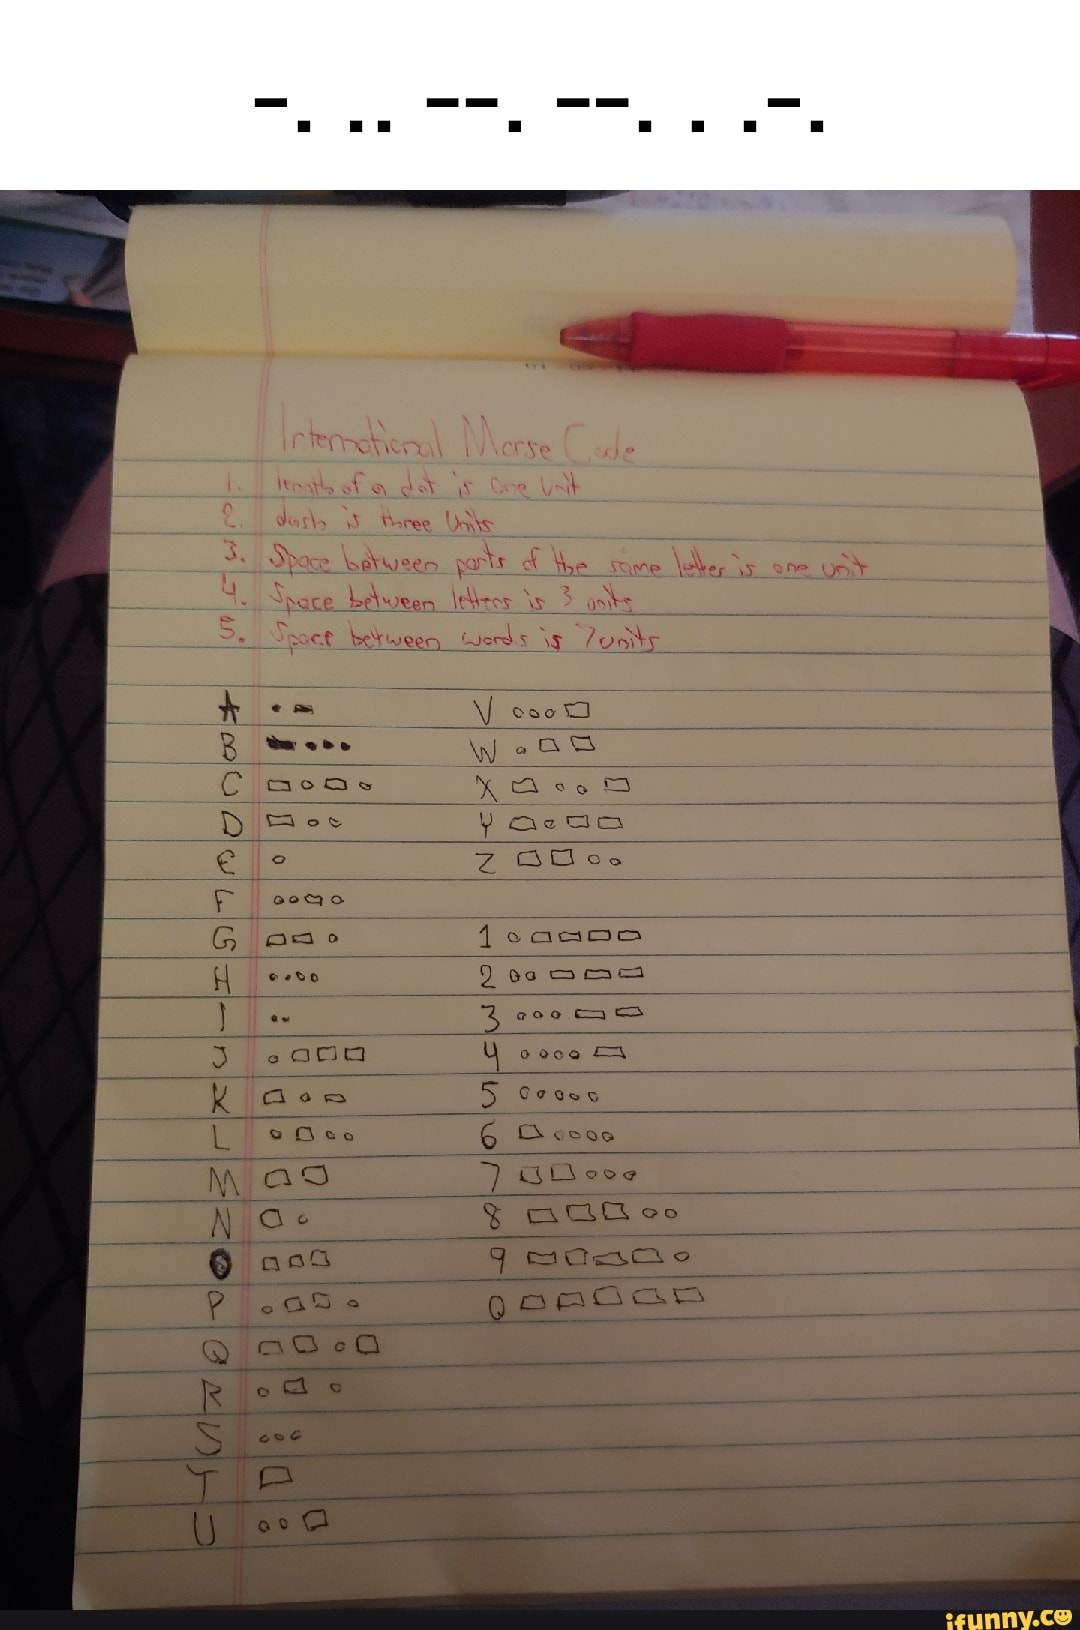 -. .. --. --. . .-.
International Morse Code
1. length of a dot is one Unit
2. dash is three Units
3. Space between parts of the same letter is one unit
4. Space between letters is 3 units
5. Space between words is 7 units
A .- V ...-
B -... W .--
C -.-. X -..-
D -.. Y -.--
E . Z --..
F ..-.
G --. 1 .----
H .... 2 ..---
I .. 3 ...--
J .--- 4 ....-
K -.- 5 .....
L .-.. 6 -....
M -- 7 --...
N -. 8 ---..
O --- 9 ----.
P .--. 0 -----
Q --.-
R .-.
S ...
T -
U ..-
ifunny.co